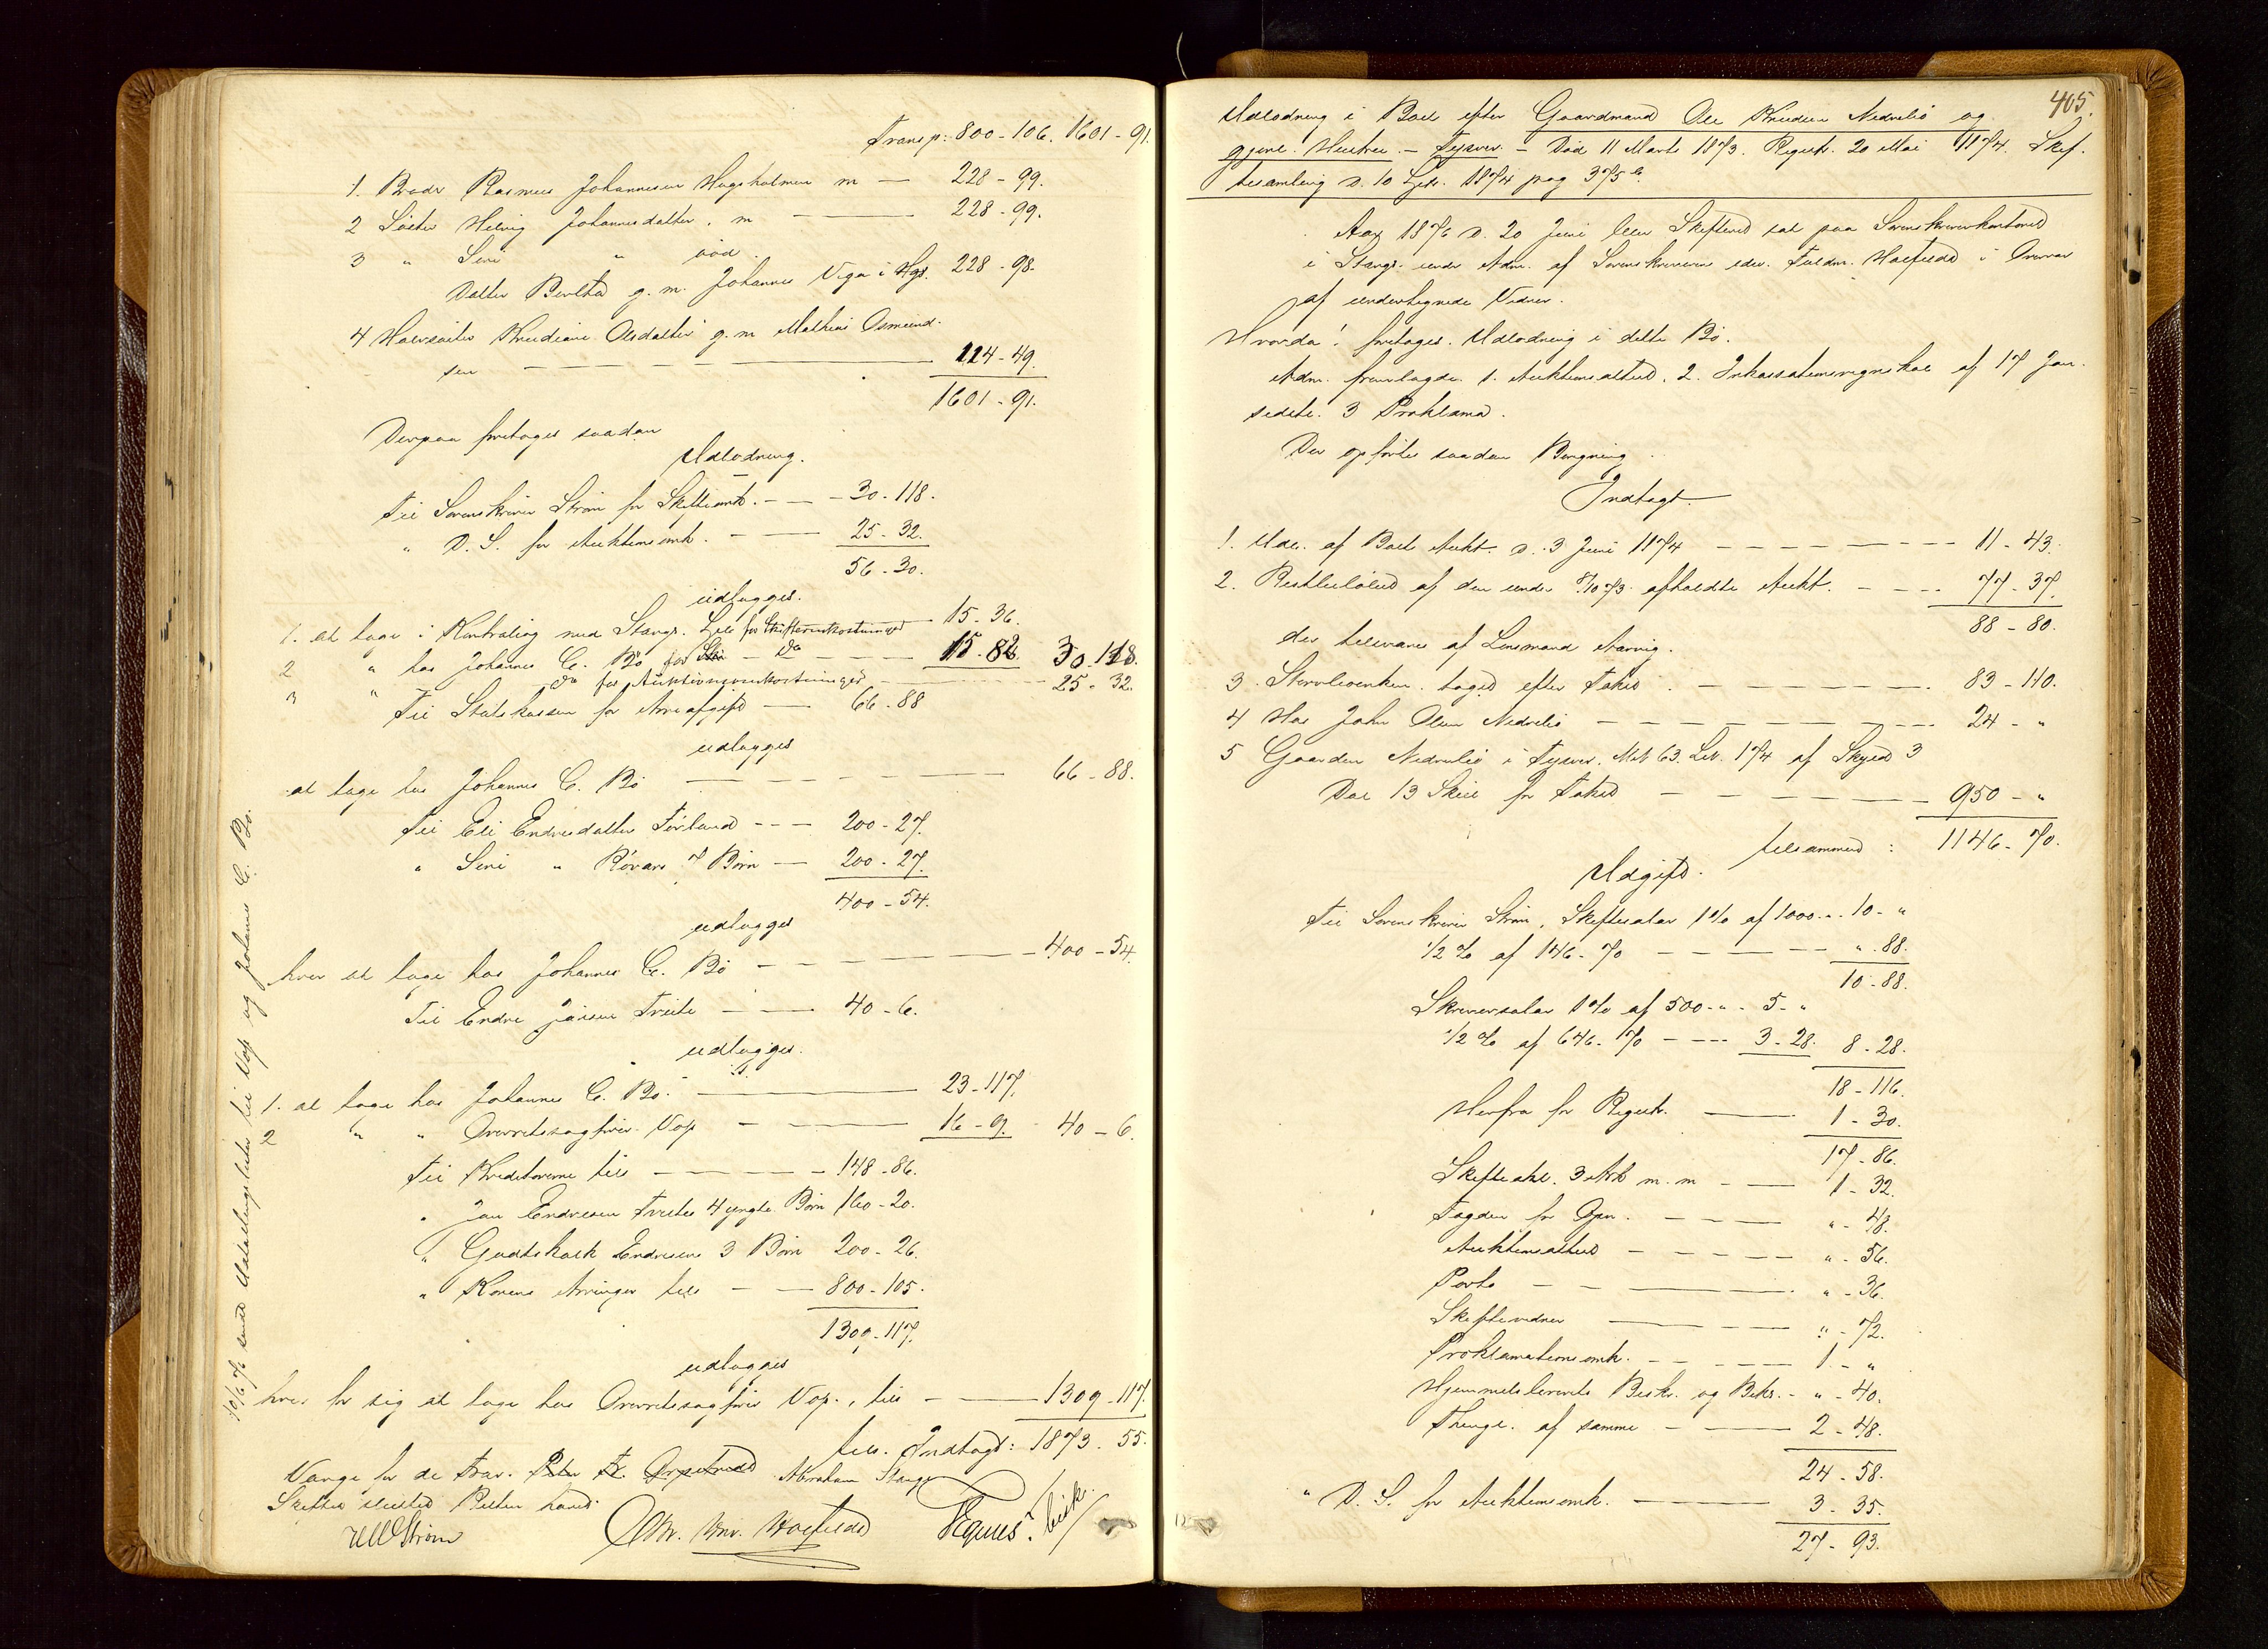 Transp: 800-106. 1601-91.
1. Broder Rasmus Johannesen Hugsholmen m — 228-99.
2 Søster Helvig Johannesdatter. m — 228-99.
3 " Siri " død.
Datter Bertha g. m. Johannes Viga i Hgs. 228-98.
4 Halvsøster Knudiane Olsdatter g. m Mathias Osmund-
sen — 114-49.
1601-91.
Derpaa foretoges saadan
Udlodning.
Til Sorenskriver Strøm for Skifteomk. — 30-118.
" D. S. for Auktionsomk. — 25-32.
56-30.
udlægges.
1. at tage i Kontraling med Stavgs. for Skifteomkostninger 15-36.
2 " hos Johannes C. Bø for do — 15-82. 30.118.
3 " do for Auktionsomkostninger — 25-32.
Til Statskassen for Arveafgift — 66-88
udlægges
at tage hos Johannes C. Bø — 66-88.
Til Eli Endresdatter Førland — 200-27.
" Siri " Røvær 7 Børn — 200-27.
400-54.
udlægges
hver at tage hos Johannes C. Bø — 400-54.
Til Endre Treite — 40-6.
udlægges.
1. at tage hos Johannes C. Bø. — 23-117.
2 " " Overretssagfører Vop — 16-9. 40-6.
Til Kreditorerne tils — 148-86.
" Jan Endresen Treites 4 yngste Børn 160-20.
" Gudtskalk Endresens 3 Børn 200-26.
" Konens Arvinger tils — 800-105.
1309-117.
udlægges
hver for sig at tage hos Overretssagfører Vop., tils — 1309-117.
tils. Indtægt: 1873-55.
Vange for de frav. Abraham Stange
Skiftet sluttet Retten hævet.
Strøm Chr. Hoefeldt
10/6 76 sendt Udlodningslister til Vop og Johannes C. Bø.
405.
Udlodning i Boet efter Gaardmand Ole Knudsen Nedrelid og
gjenl. Hustru. - Tysvær. - Død 11 Marts 1873. Registr. 20 Mai 1874. Skif-
tesamling D. 10 1874 pag 375 b.
Aar 1876 D. 20 Juni blev Skifteret sat paa Sorenskriverkontoret
i Stavgr. under Adm. af Sorenskriveren edsv. Fuldm. Hoefeldt i Overvær
af undertegnede Vidner.
Hvorda! foretoges. Udlodning i dette Bo.
Adm. fremlagde. 1. Auktionsattest. 2. Inkassationsregnskab af 17 Jan.
sidstl. 3 Proklama.
Der opførtes saadan Beregning.
Indtægt.
1. Udb. af Boets Aukt. D. 3 Juni 1874 — 11-43.
2. Restbeløbet af den under 7/10 73 afholdte Aukt. — 77-37.
88-80.
der tilsvares af Lensmand Aarvig.
3. Stervboenken. taget efter Takst — 83-110.
4 Hos John Olsen Nedrelid — 24-"
5 Gaarden Nedrelid i Tysvær. Mat 63. Løb. 174 af Skyld 3
Dal 13 Skil for Takst — 950-"
tilsammen: 1146-70.
Udgift.
Til Sorenskriver Strøm, Skiftesalær 1% af 1000.. 10-"
1/2 % af 146-70 — "-88.
10-88.
Skriversalær 1% af 500-".. 5-"
1/2 % af 646-70 — 3-28. 8-28.
18-116.
Herfra for Registr. — 1-30.
17-86.
Skifteakt. 3 Ark m. m — 1-32.
Fogden for Opn. — "-48.
Auktionsattest — "-56.
Porto — "-36.
Skiftevidner — "-72.
Proklamationsomk. — 1-"
Hjemmelsbrevets Besk. og Beks. - "-40.
Thingl. af samme — 2-48.
24-58.
" D. S. for Auktionsomk. — 3-35.
27-93.